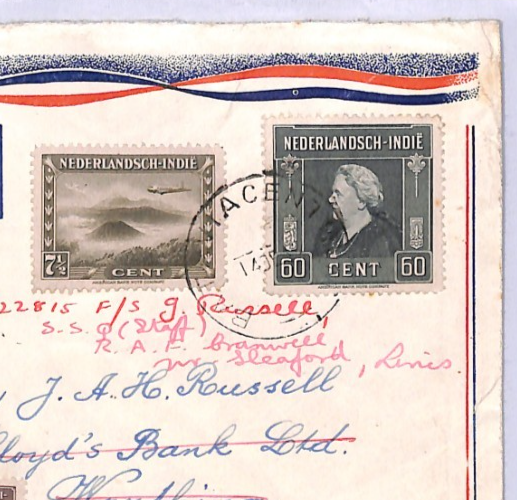 NEDERLANDSCH-INDIË
7½
CENT
AMERICAN BANK NOTE COMPANY
NEDERLANDSCH-INDIË
60 CENT 60
AMERICAN BANK NOTE COMPANY
BATAVIACENTRUM
22815 F/S J Russell,
S.S.O (Staff)
R.A.F. Cranwell
nr Sleaford, Lincs.
J. A. H. Russell
Lloyd's Bank Ltd.